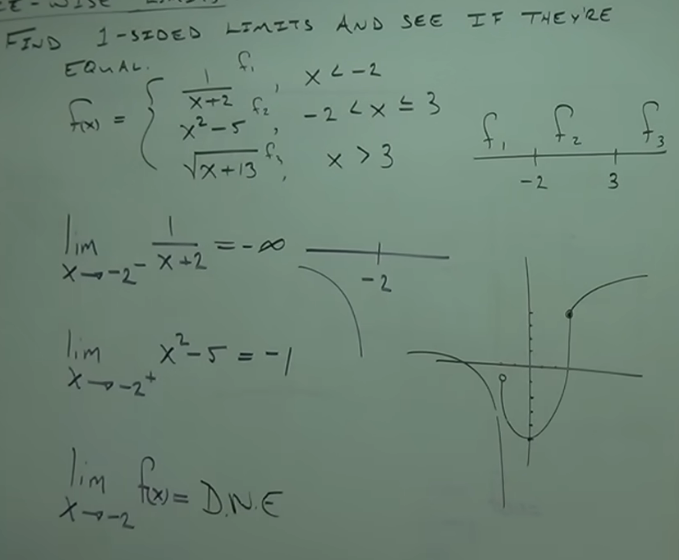 -WISE LIMITS
FIND 1-SIDED LIMITS AND SEE IF THEY'RE
EQUAL.
f(x) = { 1/(x+2) f₁, x < -2
x² - 5 f₂, -2 < x ≤ 3
√(x+13) f₃, x > 3
f₁ f₂ f₃
-2 3
lim x→-2⁻ 1/(x+2) = -∞
-2
lim x→-2⁺ x² - 5 = -1
lim x→-2 f(x) = D.N.E